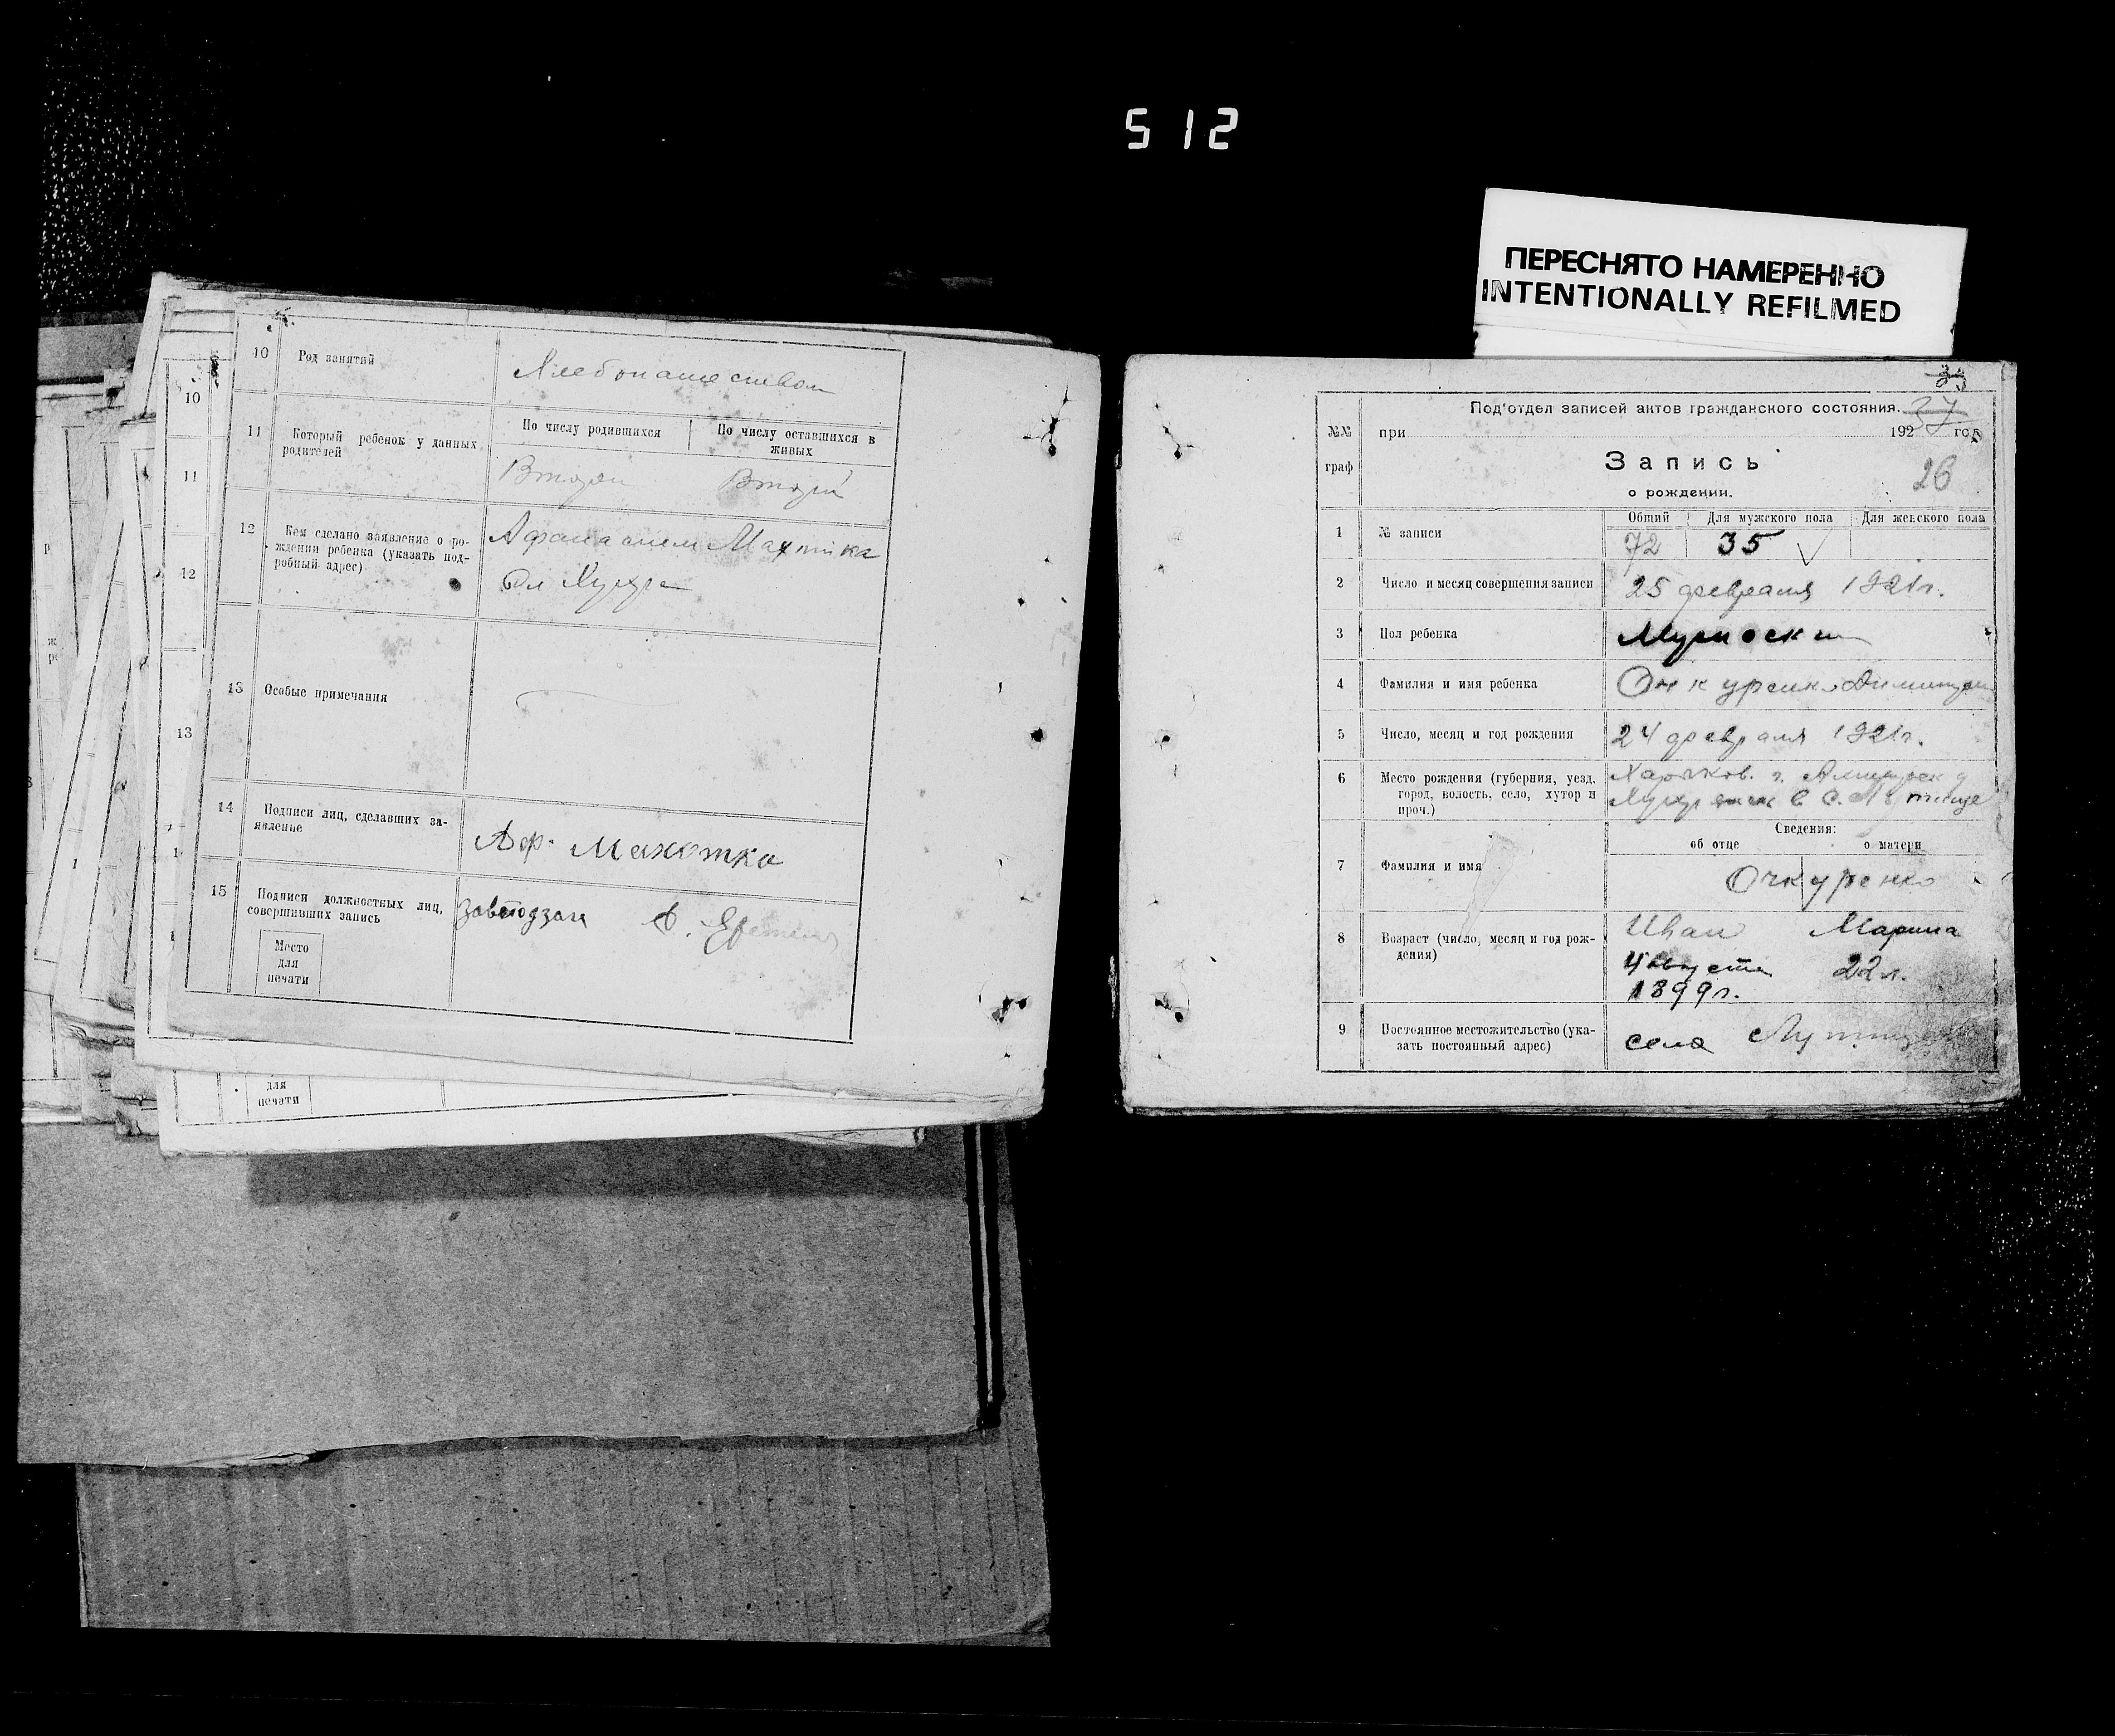 512
ПЕРЕСНЯТО НАМЕРЕННО
INTENTIONALLY REFILMED
10
11
12
13
10 Род занятий
Хлебопашеством
11 Который ребенок у данных родителей
По числу родившихся
По числу оставшихся в живых
Второй Второй
12 Кем сделано заявление о рождении ребенка (указать подробный адрес)
Афанасием Махотка
13 Особые примечания
14 Подписи лиц, сделавших заявление
Аф. Махотка
15 Подписи должностных лиц, совершивших запись
Завподзаг
Место
для
печати
для
печати
33
37
Под'отдел записей актов гражданского состояния.
№№
граф
при 192 год
Запись
о рождении.
26
1 № записи
Общий Для мужского пола Для женского пола
72 35
2 Число и месяц совершения записи
25 февраля 1921 г.
3 Пол ребенка
Мужоски
4 Фамилия и имя ребенка
Очкуренко Димитрий
5 Число, месяц и год рождения
24 февраля 1921 г.
6 Место рождения (губерния, уезд,
город, волость, село, хутор и
проч.)
Харьков. г.
Сведения:
об отце о матери
7 Фамилия и имя
Очкуренко
Иван Марина
8 Возраст (число, месяц и год рождения)
4 августа 22 л.
1899 г.
9 Постоянное местожительство (указать постоянный адрес)
села